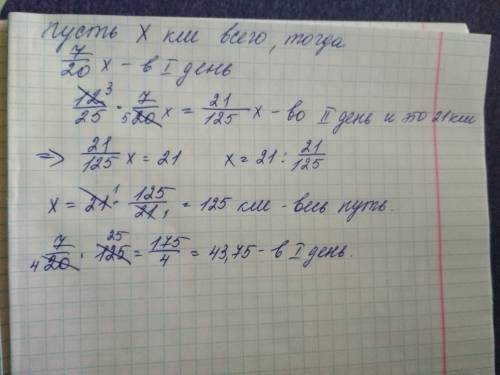 пусть x км всего, тогда
7/20 x - в I день
12³/25 · 7/₅20 x = 21/125 x - во II день и это 21 км
=> 21/125 x = 21 x = 21 : 21/125
x = 21¹ · 125/21₁ = 125 км - весь путь.
7/₄20 · 125²⁵ = 175/4 = 43,75 - в I день.